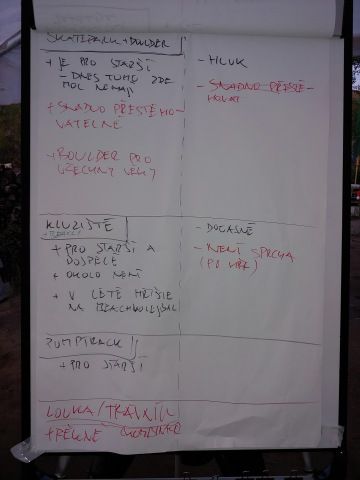 SKATEPARK + BOULDER
+ JE PRO STARŠÍ
- DNES TOHO ZDE
MOC NEMAJÍ
+ SNADNO PŘESTĚHO-
VATELNÉ
+ BOULDER PRO
VŠECHNY VĚKY
- HLUK
- SNADNO PŘESTĚ-
HOVAT
KLUZIŠTĚ
+ PRO STARŠÍ A
DOSPĚLÉ
+ OKOLO NENÍ
+ V LÉTĚ HŘIŠTĚ
NA BEACHVOLEJBAL
- DOČASNÉ
- NENÍ SPRCHA
(PO HŘE)
PUMPTRACK
+ PRO STARŠÍ
LOUKA/TRÁVNÍK
+ PĚKNÉ